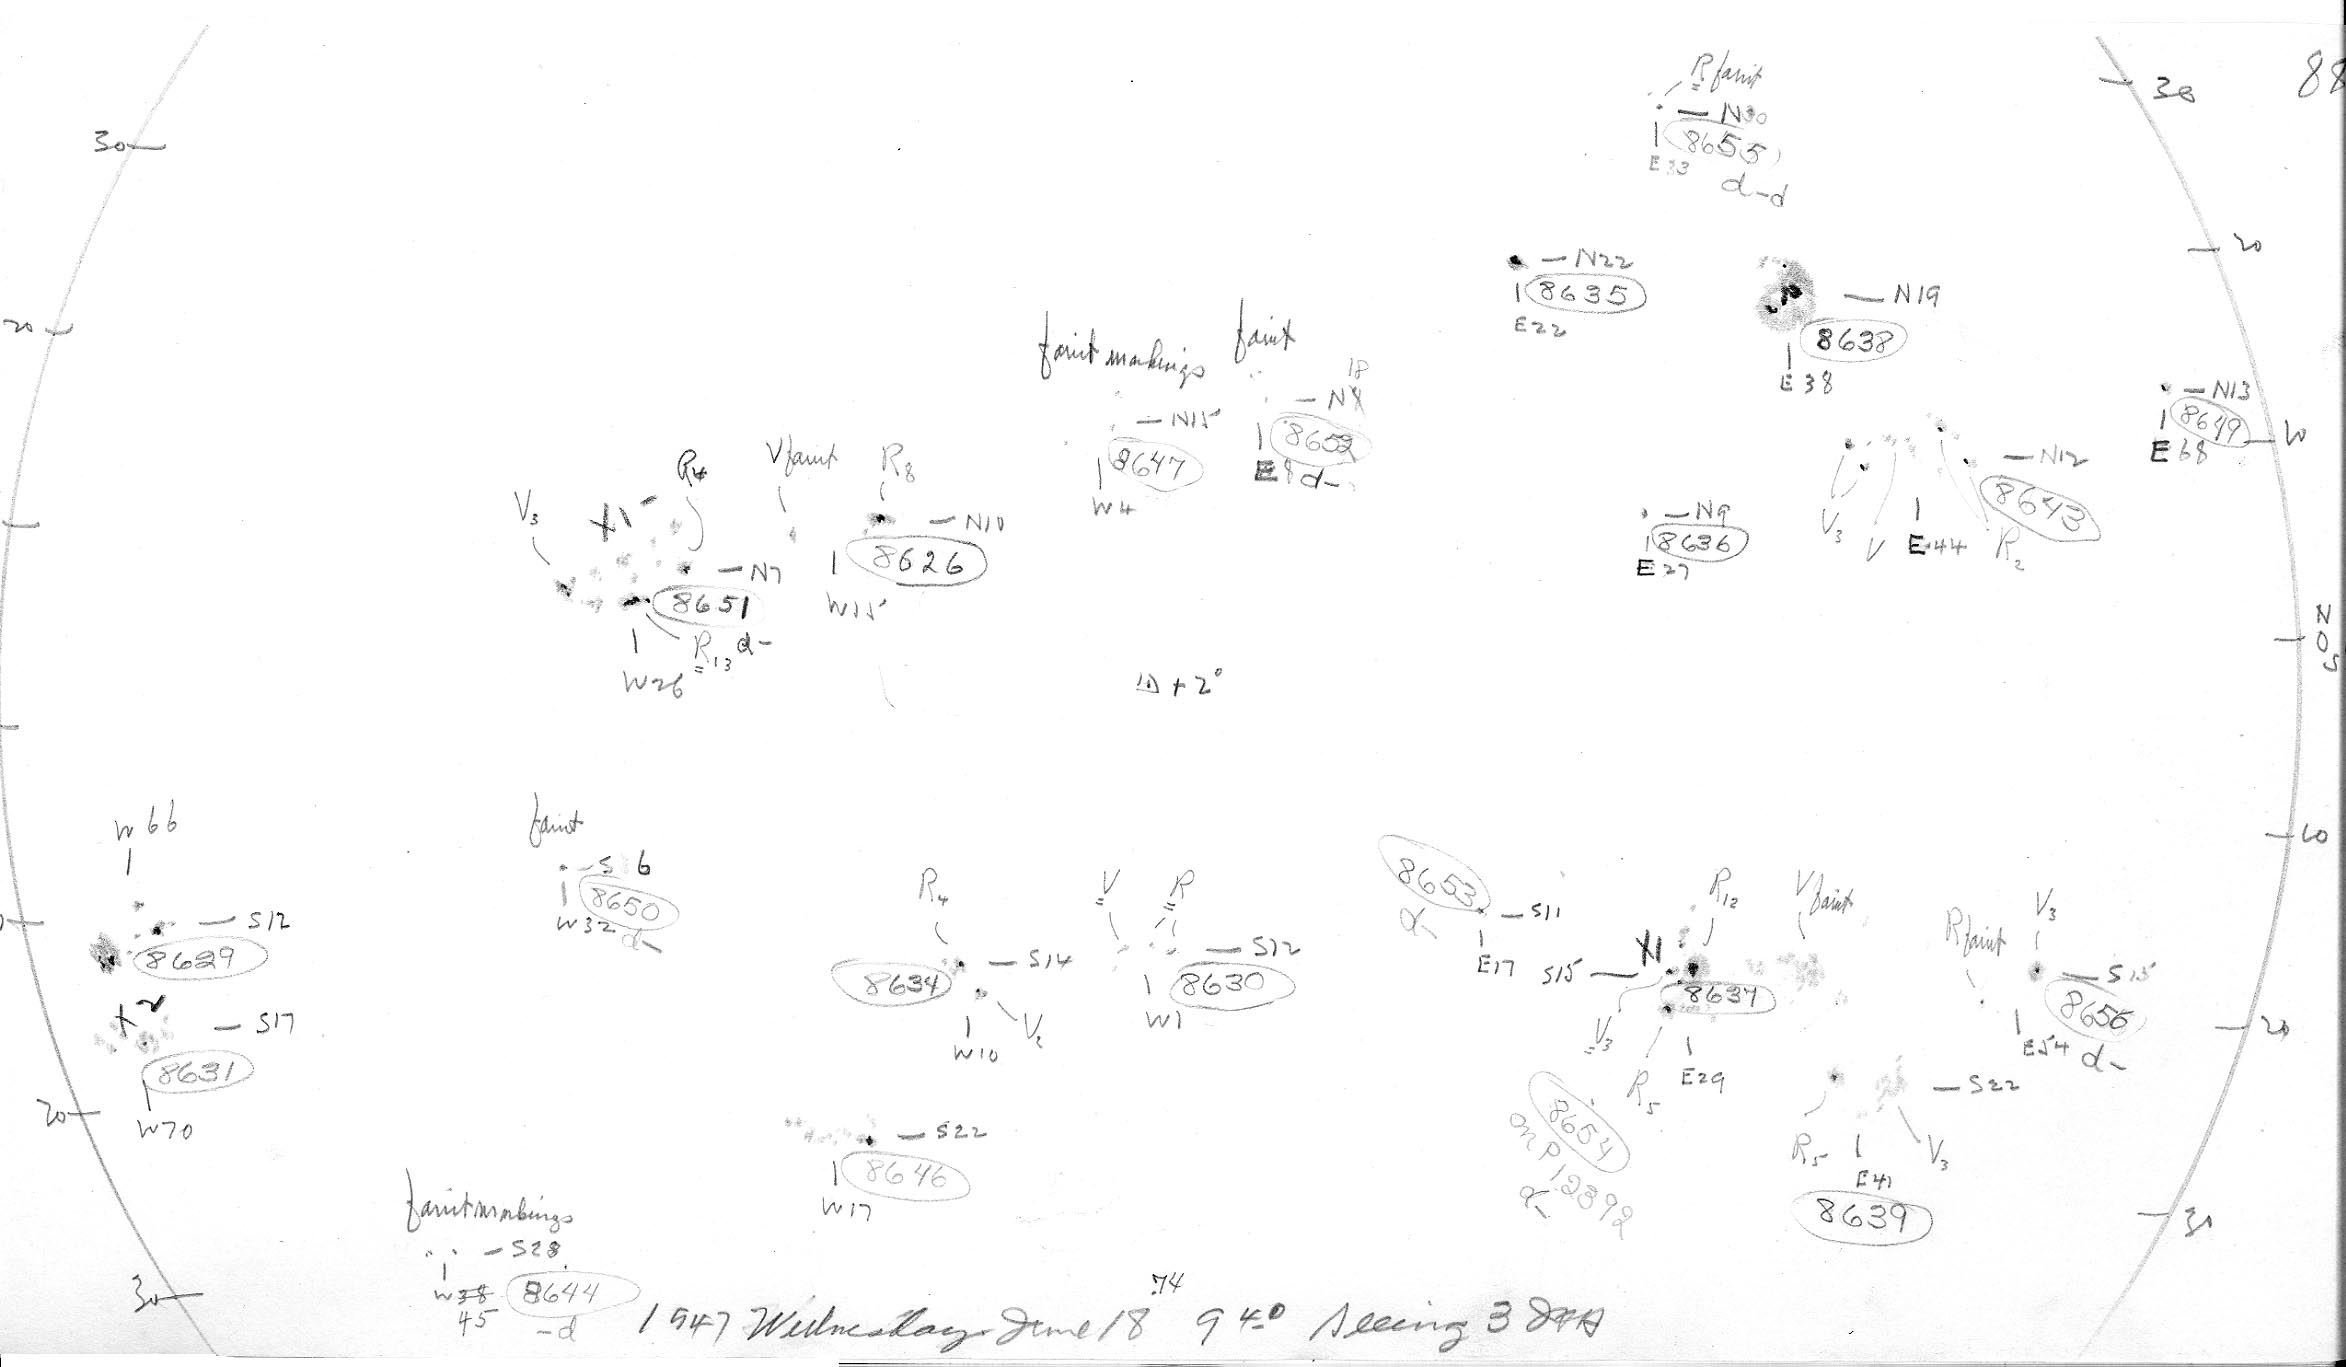 88
R faint
30
N30
8655
E33
d-d
30
N22
8635
E22
20
N19
8638
E38
20
faint markings
faint
18
N15
8647
W4
8652
E8
d-
N13
8649
E68
10
V3
R4
V faint
R8
N7
8651
R13 d-
W26
N10
8626
W15
N9
8636
E27
N12
8643
V3
V
E44
R2
N
0
S
+ 2°
W66
S12
8629
S17
8631
W70
faint
S 6
8650
W32
d-
R4
S14
8634
W10
V2
V
R
S12
8630
W1
8653
d-
S11
E17
S15
R12
V faint
8637
V3
R5
E29
R faint
V3
S15
8656
E54 d-
10
20
20
8654
on P12392
d-
S22
R5
V3
E41
8639
S22
8646
W17
faint markings
S28
W38
45
8644
-d
30
30
.74
1947 Wednesday June 18 9 40 Seeing 3